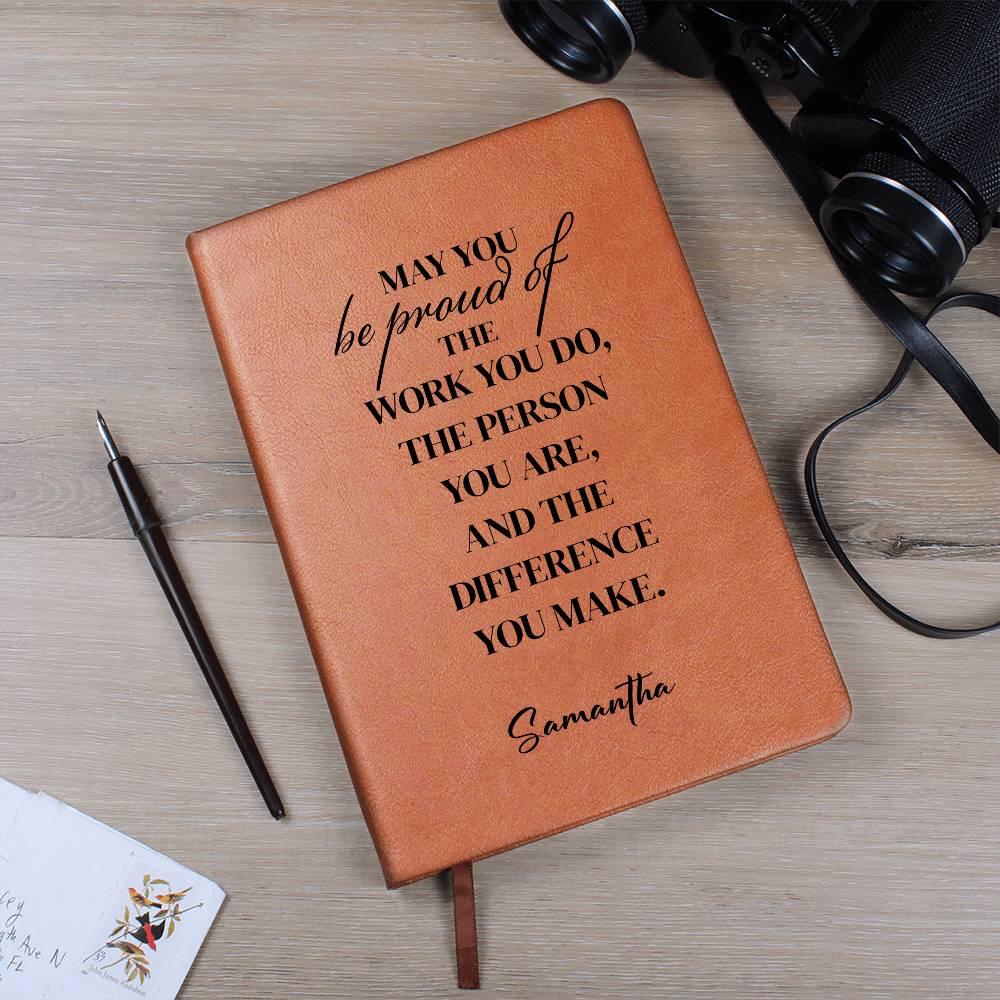 MAY YOU
be proud of
THE
WORK YOU DO,
THE PERSON
YOU ARE,
AND THE
DIFFERENCE
YOU MAKE.
Samantha
Ave N
FL
37
John James Audubon